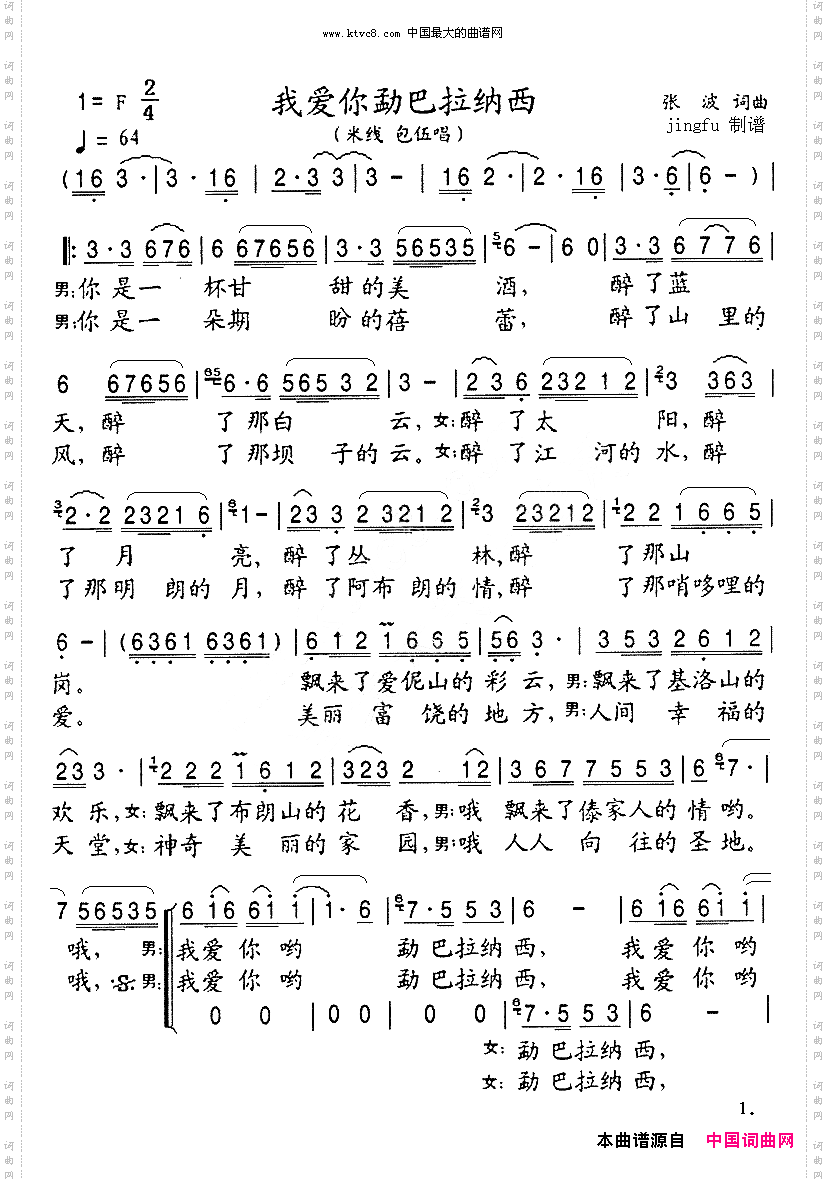 www.ktvc8.com 中国最大的曲谱网
1= F 2/4
我爱你勐巴拉纳西
张 波 词曲
♩= 64
(米线 包伍唱)
jingfu 制谱
(16 3·|3·16 | 2·3 3|3 - | 16 2·|2·16 |3·6|6 -)|
‖: 3·3 676|6 67656|3·3 56535|6 -|6 0|3·3 6776|
男:你是一 杯甘 甜的美 酒, 醉了蓝
男:你是一 朵期 盼的蓓 蕾, 醉了山 里的
6 67656|6·6 56532|3 -|236 23212|3 363|
天,醉 了那白 云,女:醉 了太 阳,醉
风,醉 了那坝 子的云。女:醉 了江 河的水,醉
2·2 23216|1-|233 23212|3 23212|22 1665|
了 月 亮,醉了丛 林,醉 了那山
了那明 朗的月,醉了阿布 朗的情,醉 了那哨哆哩的
6 -|(6361 6361)|612 1665|56 3·|353 2612|
岗。 飘来了爱伲山的彩云,男:飘来了基洛山的
爱。 美丽富 饶的地方,男:人间 幸 福的
23 3·|222 1612|323 2 12|3677553|6 7·|
欢乐,女:飘来了布朗山的花 香,男:哦 飘来了傣家人的情哟。
天堂,女:神奇美 丽的家 园,男:哦 人人 向 往的圣地。
7 56535|6 16 61 1|1·6|7·553|6 -|6 16 61 1|
哦, 男:我爱你哟 勐巴拉纳西, 我爱你哟
哦, 男:我爱你哟 勐巴拉纳西, 我爱你哟
0 0|0 0|0 0|7·553|6 -|
女:勐巴拉纳西,
女:勐巴拉纳西,
1.
本曲谱源自 中国词曲网